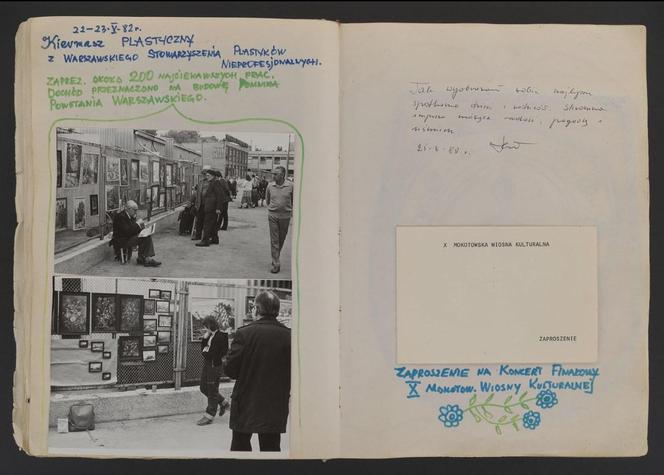 22-23.V.82r.
Kiermasz PLASTYCZNY
z WARSZAWSKIEGO STOWARZYSZENIA PLASTYKÓW
NIEPROFESJONALNYCH.
ZAPREZ. OKOŁO 200 NAJCIEKAWSZYCH PRAC.
DOCHÓD PRZEZNACZONO NA BUDOWĘ POMNIKA
POWSTANIA WARSZAWSKIEGO.
Tak wyobrażam sobie najlepsze
spotkanie dzieci i rodziców.
impreza radość, pogodę i
uśmiech
X MOKOTOWSKA WIOSNA KULTURALNA
ZAPROSZENIE
ZAPROSZENIE NA KONCERT FINAŁOWY
X MOKOTOW. WIOSNY KULTURALNEJ